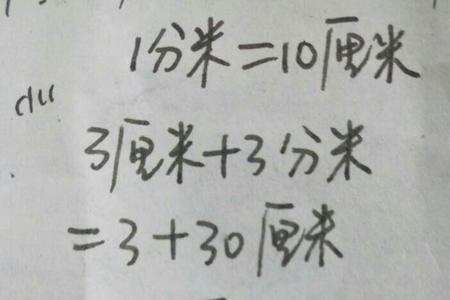 1分米=10厘米
3厘米+3分米
=3+30厘米